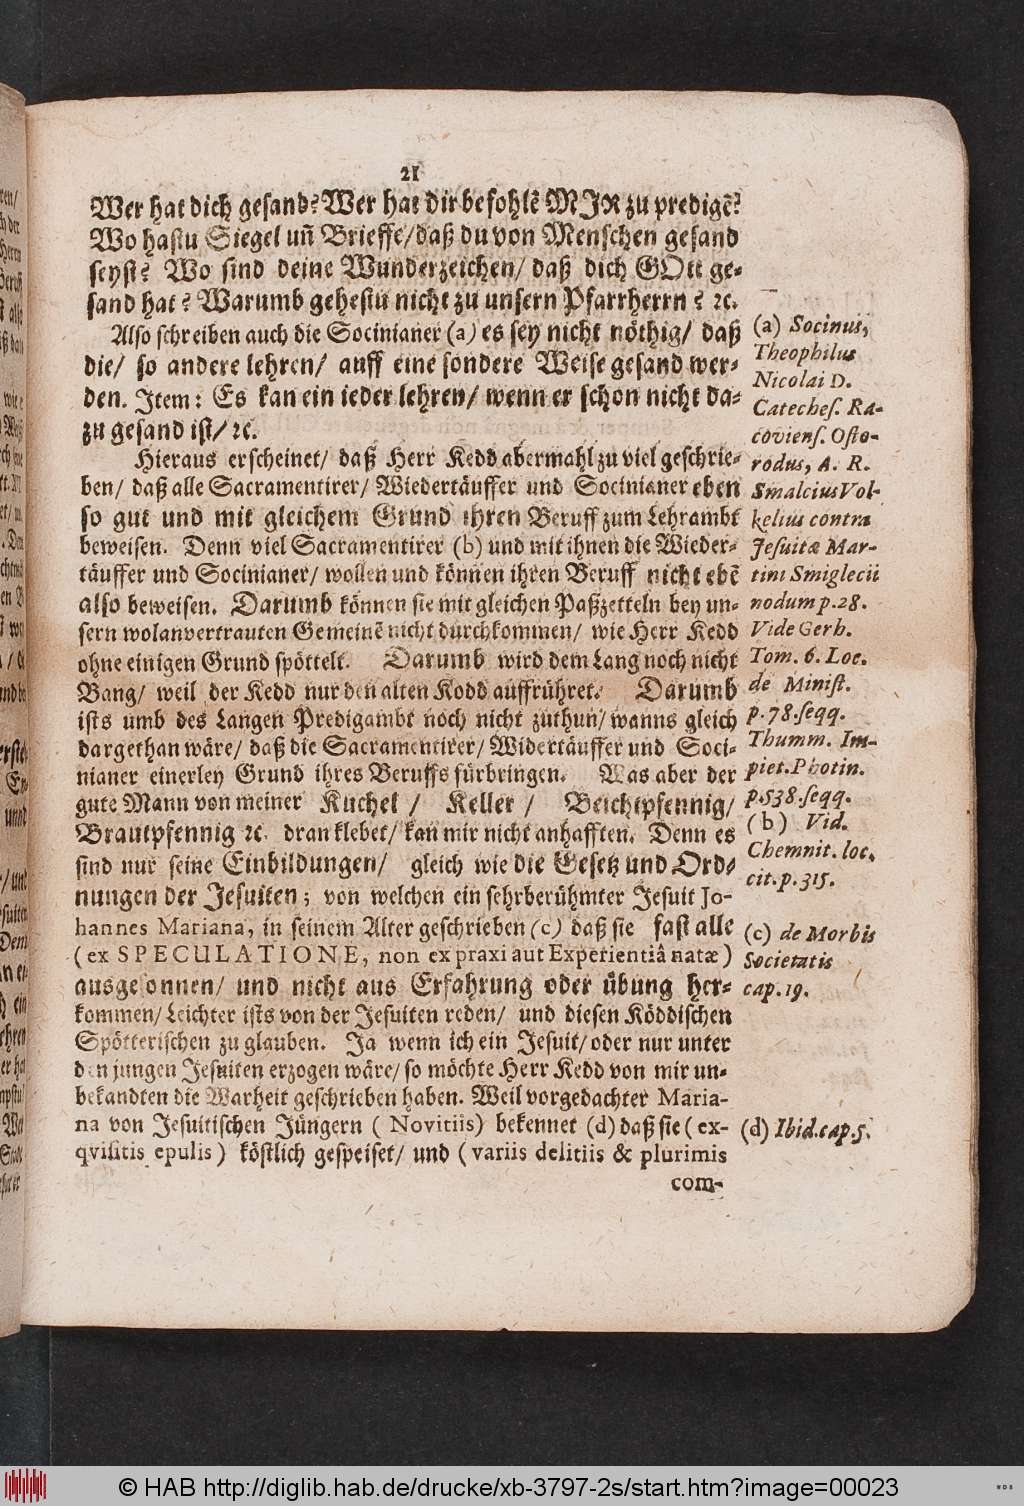 21
Wer hat dich gesand? Wer hat dir befohlẽ MIR zu predigẽ?
Wo hastu Siegel uñ Brieffe/ daß du von Menschen gesand
seyst? Wo sind deine Wunderzeichen/ daß dich GOtt ge-
sand hat? Warumb gehestu nicht zu unsern Pfarrherrn? ꝛc.
Also schreiben auch die Socinianer (a) es sey nicht nöthig/ daß
die/ so andere lehren/ auff eine sondere Weise gesand wer-
den. Item: Es kan ein ieder lehren/ wenn er schon nicht da-
zu gesand ist/ ꝛc.
Hieraus erscheinet/ daß Herr Kedd abermahl zu viel geschrie-
ben/ daß alle Sacramentirer/ Wiedertäuffer und Socinianer eben
so gut und mit gleichem Grund ihren Beruff zum Lehrambt
beweisen. Denn viel Sacramentirer (b) und mit ihnen die Wieder-
täuffer und Socinianer/ wollen und können ihren Beruff nicht ebẽ
also beweisen. Darumb können sie mit gleichen Paßzetteln bey un-
sern wolanvertrauten Gemeinẽ nicht durchkommen/ wie Herr Kedd
ohne einigen Grund spöttelt. Darumb wird dem Lang noch nicht
Bang/ weil der Kedd nur den alten Kodd auffrühret. Darumb
ists umb des Langen Predigambt noch nicht zuthun/ wanns gleich
dargethan wäre/ daß die Sacramentirer/ Widertäuffer und Soci-
nianer einerley Grund ihres Beruffs fürbringen. Was aber der
gute Mann von meiner Kuchel / Keller / Beichtpfennig/
Brautpfennig ꝛc. dran klebet/ kan mir nicht anhafften. Denn es
sind nur seine Einbildungen/ gleich wie die Gesetz und Ord-
nungen der Jesuiten; von welchen ein sehrberühmter Jesuit Jo-
hannes Mariana, in seinem Alter geschrieben (c) daß sie fast alle
(ex SPECULATIONE, non ex praxi aut Experientiâ natæ)
ausgesonnen/ und nicht aus Erfahrung oder übung her-
kommen/ Leichter ists von der Jesuiten reden/ und diesen Köddischen
Spötterischen zu glauben. Ja wenn ich ein Jesuit/ oder nur unter
den jungen Jesuiten erzogen wäre/ so möchte Herr Kedd von mir un-
bekandten die Warheit geschrieben haben. Weil vorgedachter Maria-
na von Jesuitischen Jüngern (Novitiis) bekennet (d) daß sie (ex-
qvisitis epulis) köstlich gespeiset/ und (variis delitiis & plurimis
com-
(a) Socinus,
Theophilus
Nicolai D.
Cateches. Ra-
coviens. Osto-
rodus, A. R.
Smalcius Vol-
kelius contra
Jesuitæ Mar-
tini Smiglecii
nodum p. 28.
Vide Gerh.
Tom. 6. Loc.
de Minist.
p. 78. seqq.
Thumm. Im-
piet. Photin.
p. 538. seqq.
(b) Vid.
Chemnit. loc.
cit. p. 315.
(c) de Morbis
Societatis
cap. 19.
(d) Ibid. cap. 5.
© HAB http://diglib.hab.de/drucke/xb-3797-2s/start.htm?image=00023